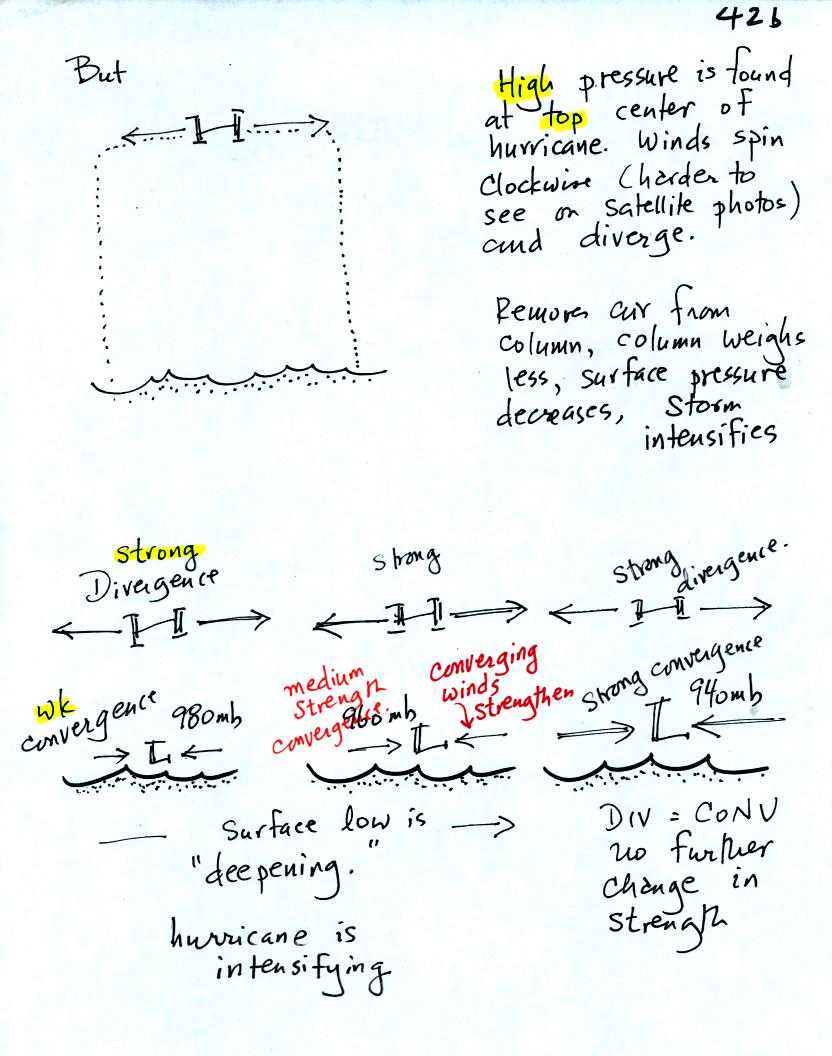 42b
But
H
High pressure is found
at top center of
hurricane. Winds spin
Clockwise (harder to
see on satellite photos)
and diverge.
Removes air from
column, column weighs
less, surface pressure
decreases, Storm
intensifies
strong
Divergence
H
wk
convergence
980mb
L
strong
H
medium
Strength
convergence.
960mb
converging
winds
strengthen
L
strong
divergence.
H
Strong convergence
940mb
L
Surface low is
"deepening."
hurricane is
intensifying
DIV = CONV
no further
change in
strength